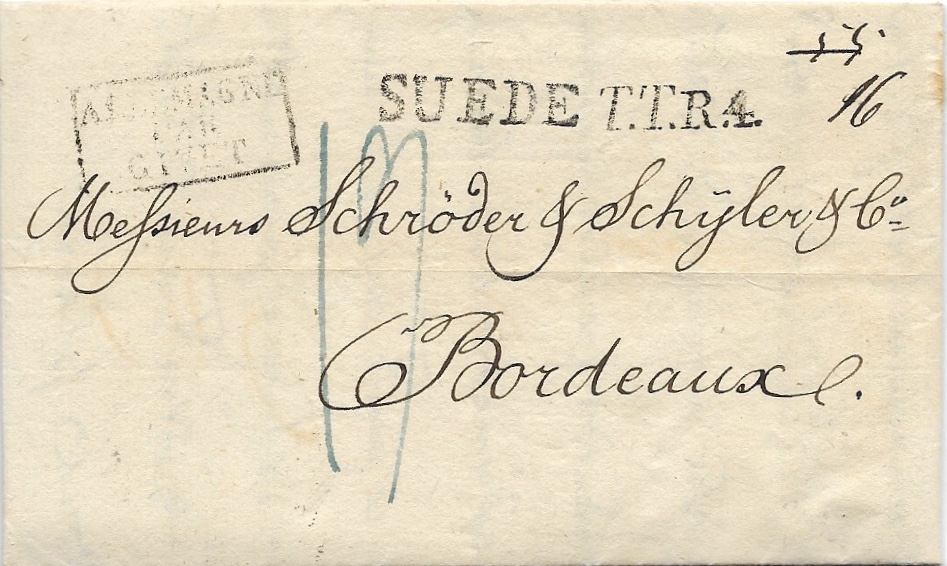 55
16
SUEDE T.T.R.4.
ALLEMAGNE
PAR
GIVET
Messieurs Schröder & Schÿler & Co
Bordeaux.